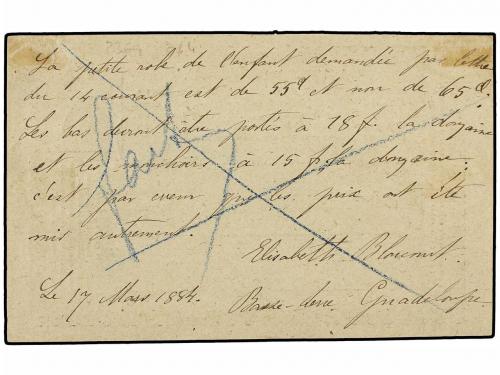 La petite robe de l'enfant demandée par lettre
du 14 courant est de 55d et non de 65d.
Les bas devront être portés à 18 f. la douzaine
et les mouchoirs à 15 f. la douzaine.
c'est par erreur que les prix ont été
mis autrement.
Elisabeth
Le 17 Mars 1884.
Basse-terre Guadeloupe.